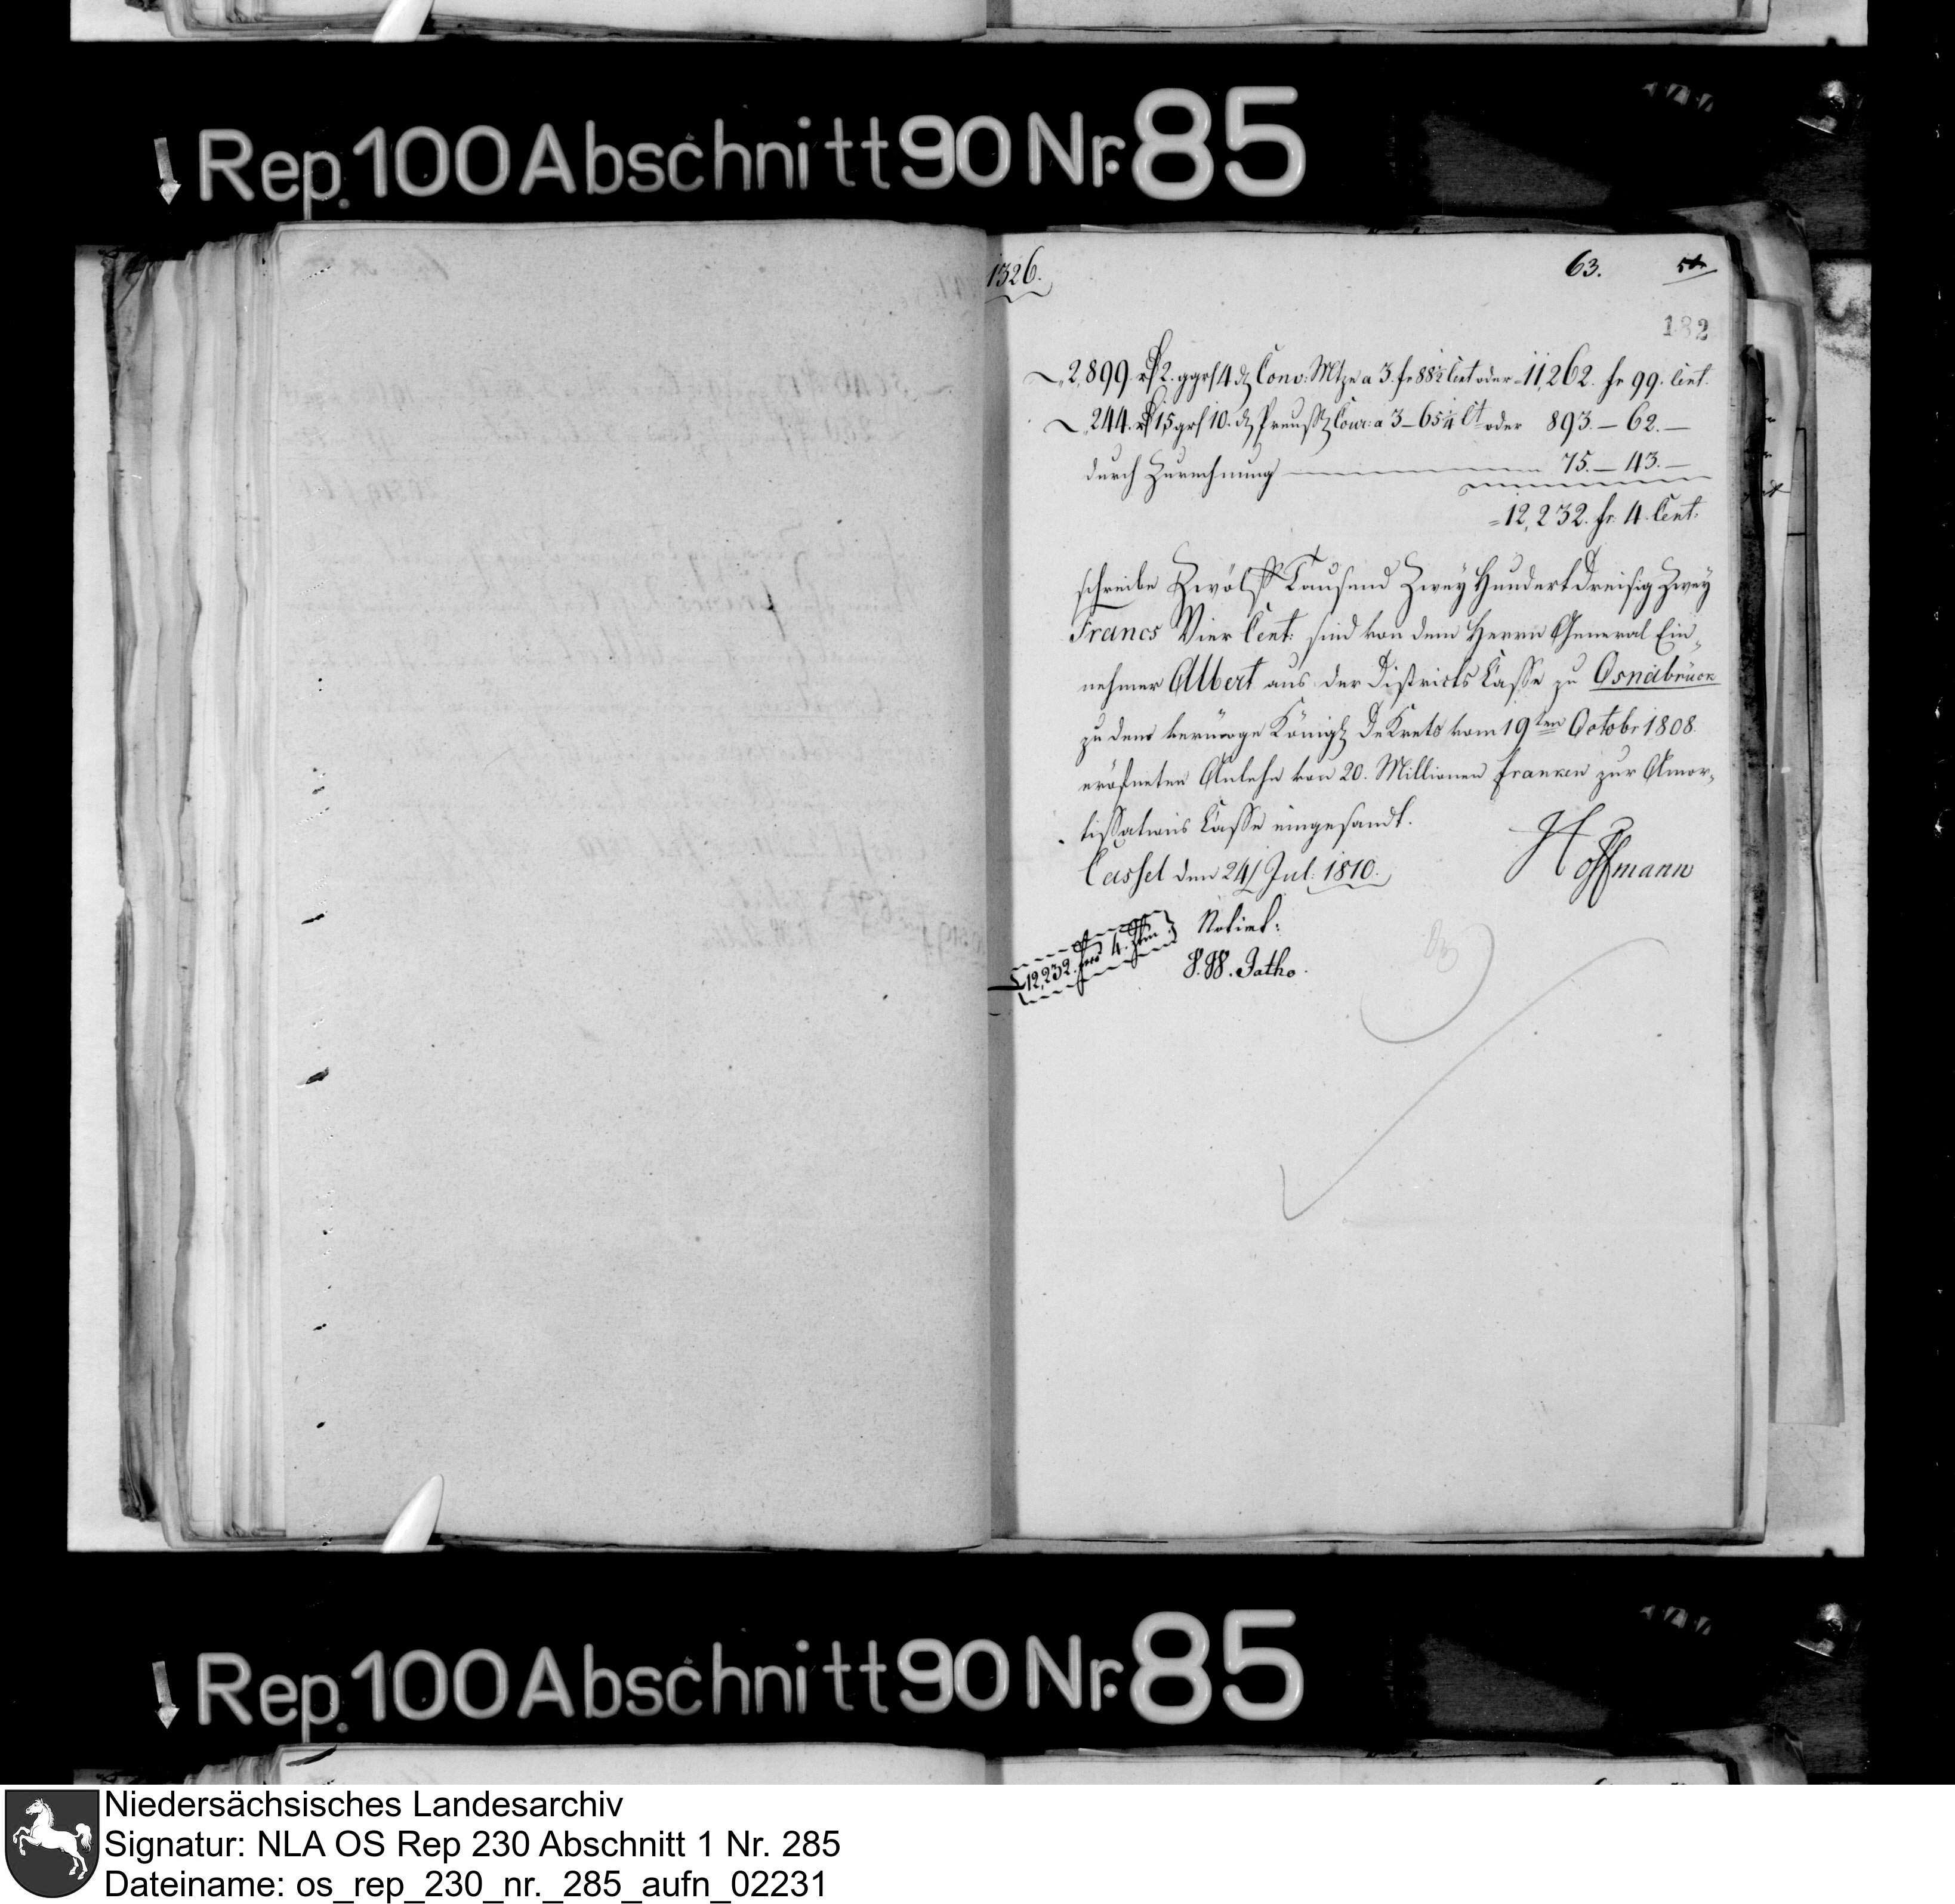 Rep. 100 Abschnitt 90 Nr. 85
1326.
63.
182
2,899 rh 2. ggr 4 d Conv: Mtze a 3. fr 88½ Cent oder 11,262. fr 99. Cent.
244. rh 15 gr 10. d Preuß Cour: a 3 – 65¼ Ct oder 893. – 62. –
durch Zurechnung 75. – 43. –
= 12,232. fr. 4. Cent:
schreibe Zwölf Tausend Zwey Hundert Dreisig Zwey
Francs Vier Cent: sind von dem Herrn General Ein-
nehmer Albert aus der Districts Casse zu Osnabrück
zu dem vermöge Königl Dekrets vom 19ten Octobr 1808.
eröfneten Anlehn von 20. Millionen Franken zur Amor-
tissations Casse eingesandt.
Cassel den 24/ Jul. 1810.
Hoffmann
12,232. frcs 4. Ctm
Notirt:
Jatho.
Rep. 100 Abschnitt 90 Nr. 85
Niedersächsisches Landesarchiv
Signatur: NLA OS Rep 230 Abschnitt 1 Nr. 285
Dateiname: os_rep_230_nr._285_aufn_02231